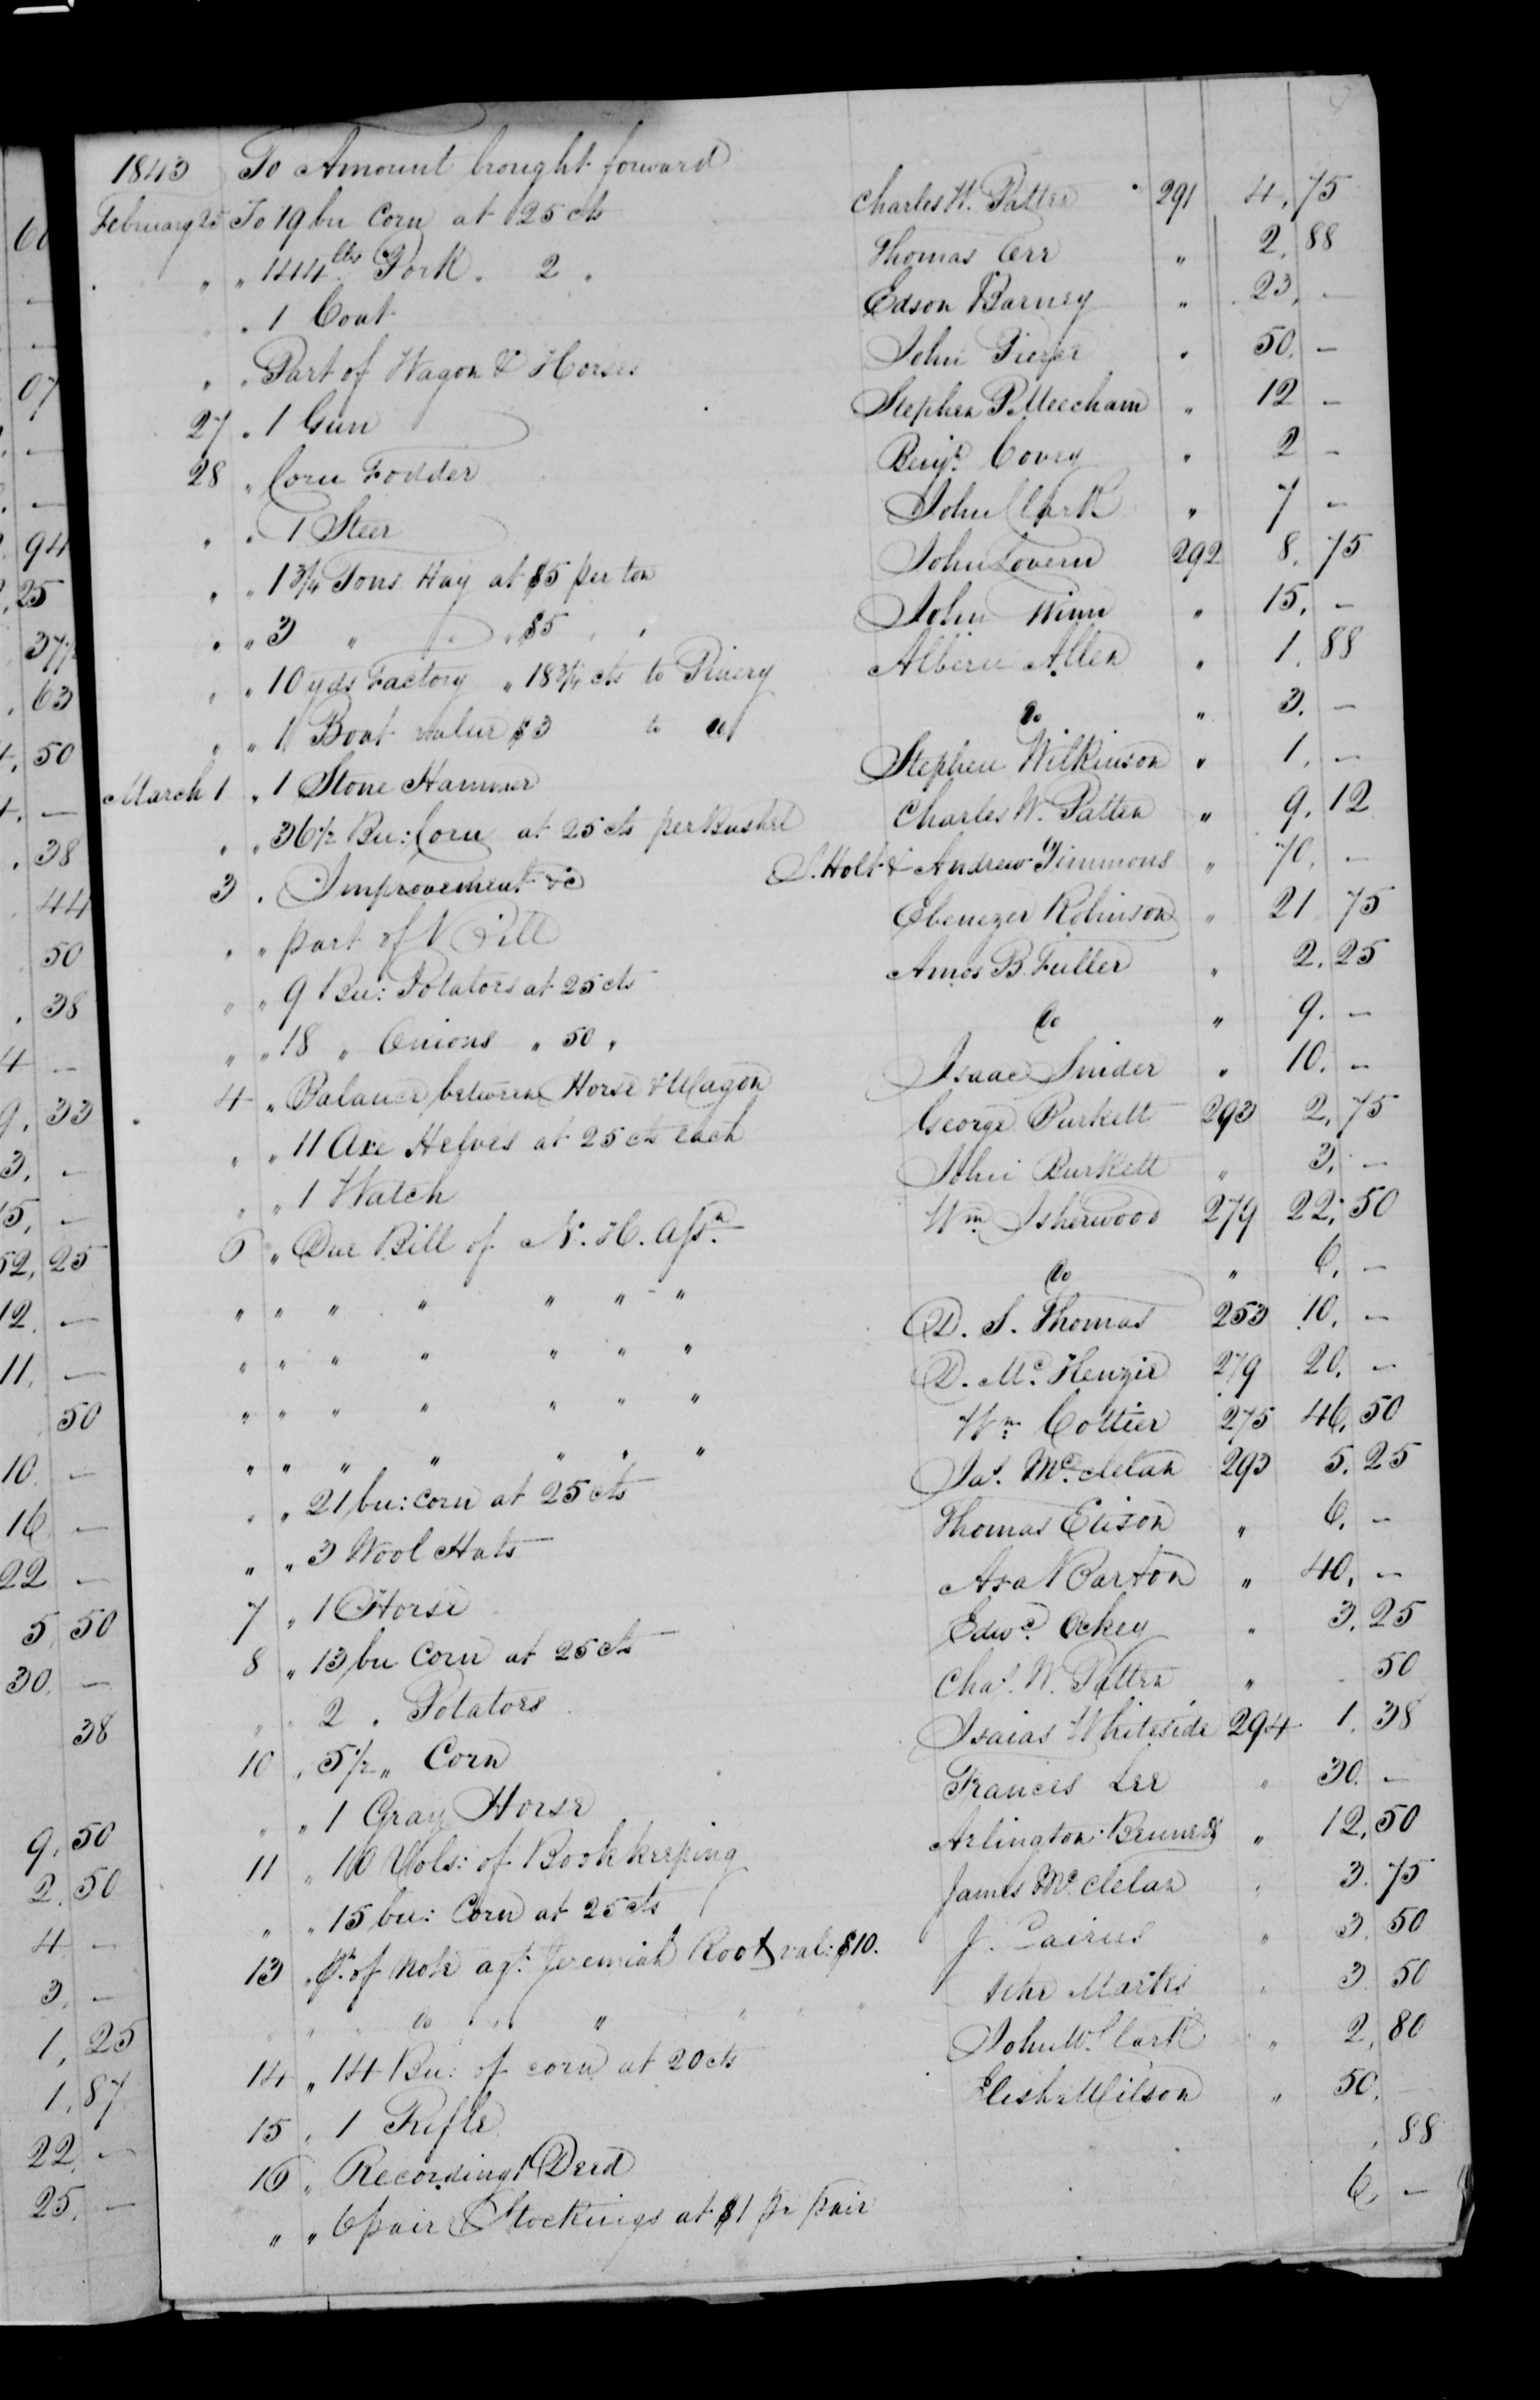 1843 To Amount brought forward
February 25 To 19 bu Corn at 25 cts Charles W. Patten 291 4, 75
" " 144 lbs Pork " 2 " Thomas Orr " 2, 88
" 1 Coat Edson Barney " 23, —
" " Part of Wagon & Horses John Pierce " 50, —
27 " 1 Gun Stephen P. Meecham " 12 —
28 " Corn Fodder Benjn. Covey " 2 —
" " 1 Steer John Clark " 7 —
" " 1 3/4 Tons Hay at $5 per ton John Lovern 292 8, 75
" " 3 " " " $5 " " John Winn " 15, —
" " 10 yds Factory " 18 3/4 cts to Pinery Albern Allen " 1, 88
" " 1 Boat value $3 to do do " 3, —
March 1 " 1 Stone Hammer Stephen Wilkinson " 1, —
" " 36 1/2 Bu: Corn at 25 cts per Bushel Charles W. Patten " 9, 12
3 " Improvement &c S. Holt & Andrew Timmons " 70, —
" " part of N Pill Ebenezer Robinson " 21 75
" " 9 Bu: Potatoes at 25 cts Amos B. Fuller " 2, 25
" " 18 " Onions " 50 " do " 9, —
4 " Balance between Horse & Wagon Isaac Snider " 10, —
" " 11 Axe Helves at 25 cts each George Burkett 293 2, 75
" " 1 Watch John Burkett " 3, —
6 " Due Bill of N. H. Assn. Wm Isherwood 279 22, 50
" " " " " " " do " 6, —
" " " " " " " D. S. Thomas 253 10, —
" " " " " " " D. Mc. Kenzie 279 20, —
" " " " " " " Wm. Cottier 275 46, 50
" " 21 bu: corn at 25 cts Jas. Mc. clelan 293 5, 25
" " 3 Wool Hats Thomas Elison " 6, —
7 " 1 Horse Asa Barton " 40, —
8 " 13 bu Corn at 25 cts Edwd. Ockey " 3, 25
" " 2 " Potatoes Chas. W. Patten " 50
10 " 5 1/2 " Corn Isaias Whiteside 294 1, 38
" " 1 Gray Horse Frances Lee " 30, —
11 " 10 Vols: of Book keeping Arlington Bennett " 12, 50
" " 15 bu: Corn at 25 cts James Mc. clelan " 3, 75
13 " Pt. of Note agt. Jeremiah Root val: $10. J. Cairns " 3, 50
" " " do " " " " " Marks " 3 50
14 " 14 Bu: of corn at 20 cts John W. Clark " 2, 80
15 " 1 Rifle Elisha Wilson " 50,
16 " Recording 1 Deed , 88
" " 6 pair Stockings at $1 pr pair 6, —